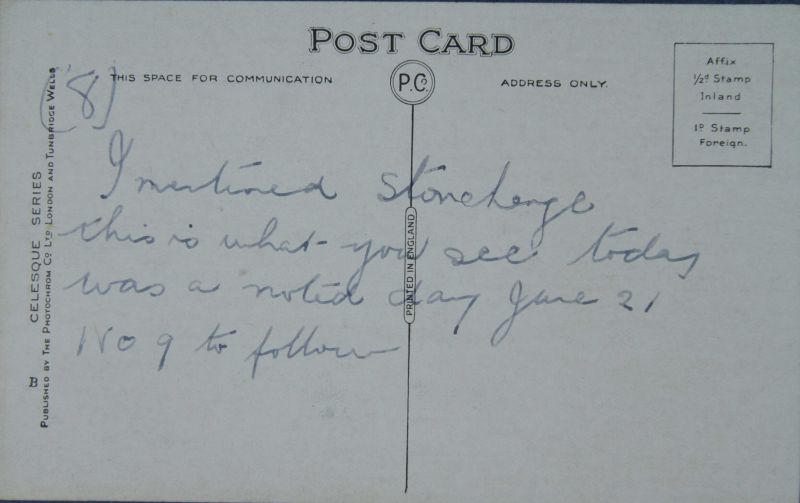 POST CARD
THIS SPACE FOR COMMUNICATION
P.C.
ADDRESS ONLY.
Affix
½d Stamp
Inland
1D Stamp
Foreign.
(8)
I mentioned Stonehenge
this is what you see today
was a noted day June 21
No 9 to follow
PRINTED IN ENGLAND
B
CELESQUE SERIES
PUBLISHED BY THE PHOTOCHROM CO LTD LONDON AND TUNBRIDGE WELLS